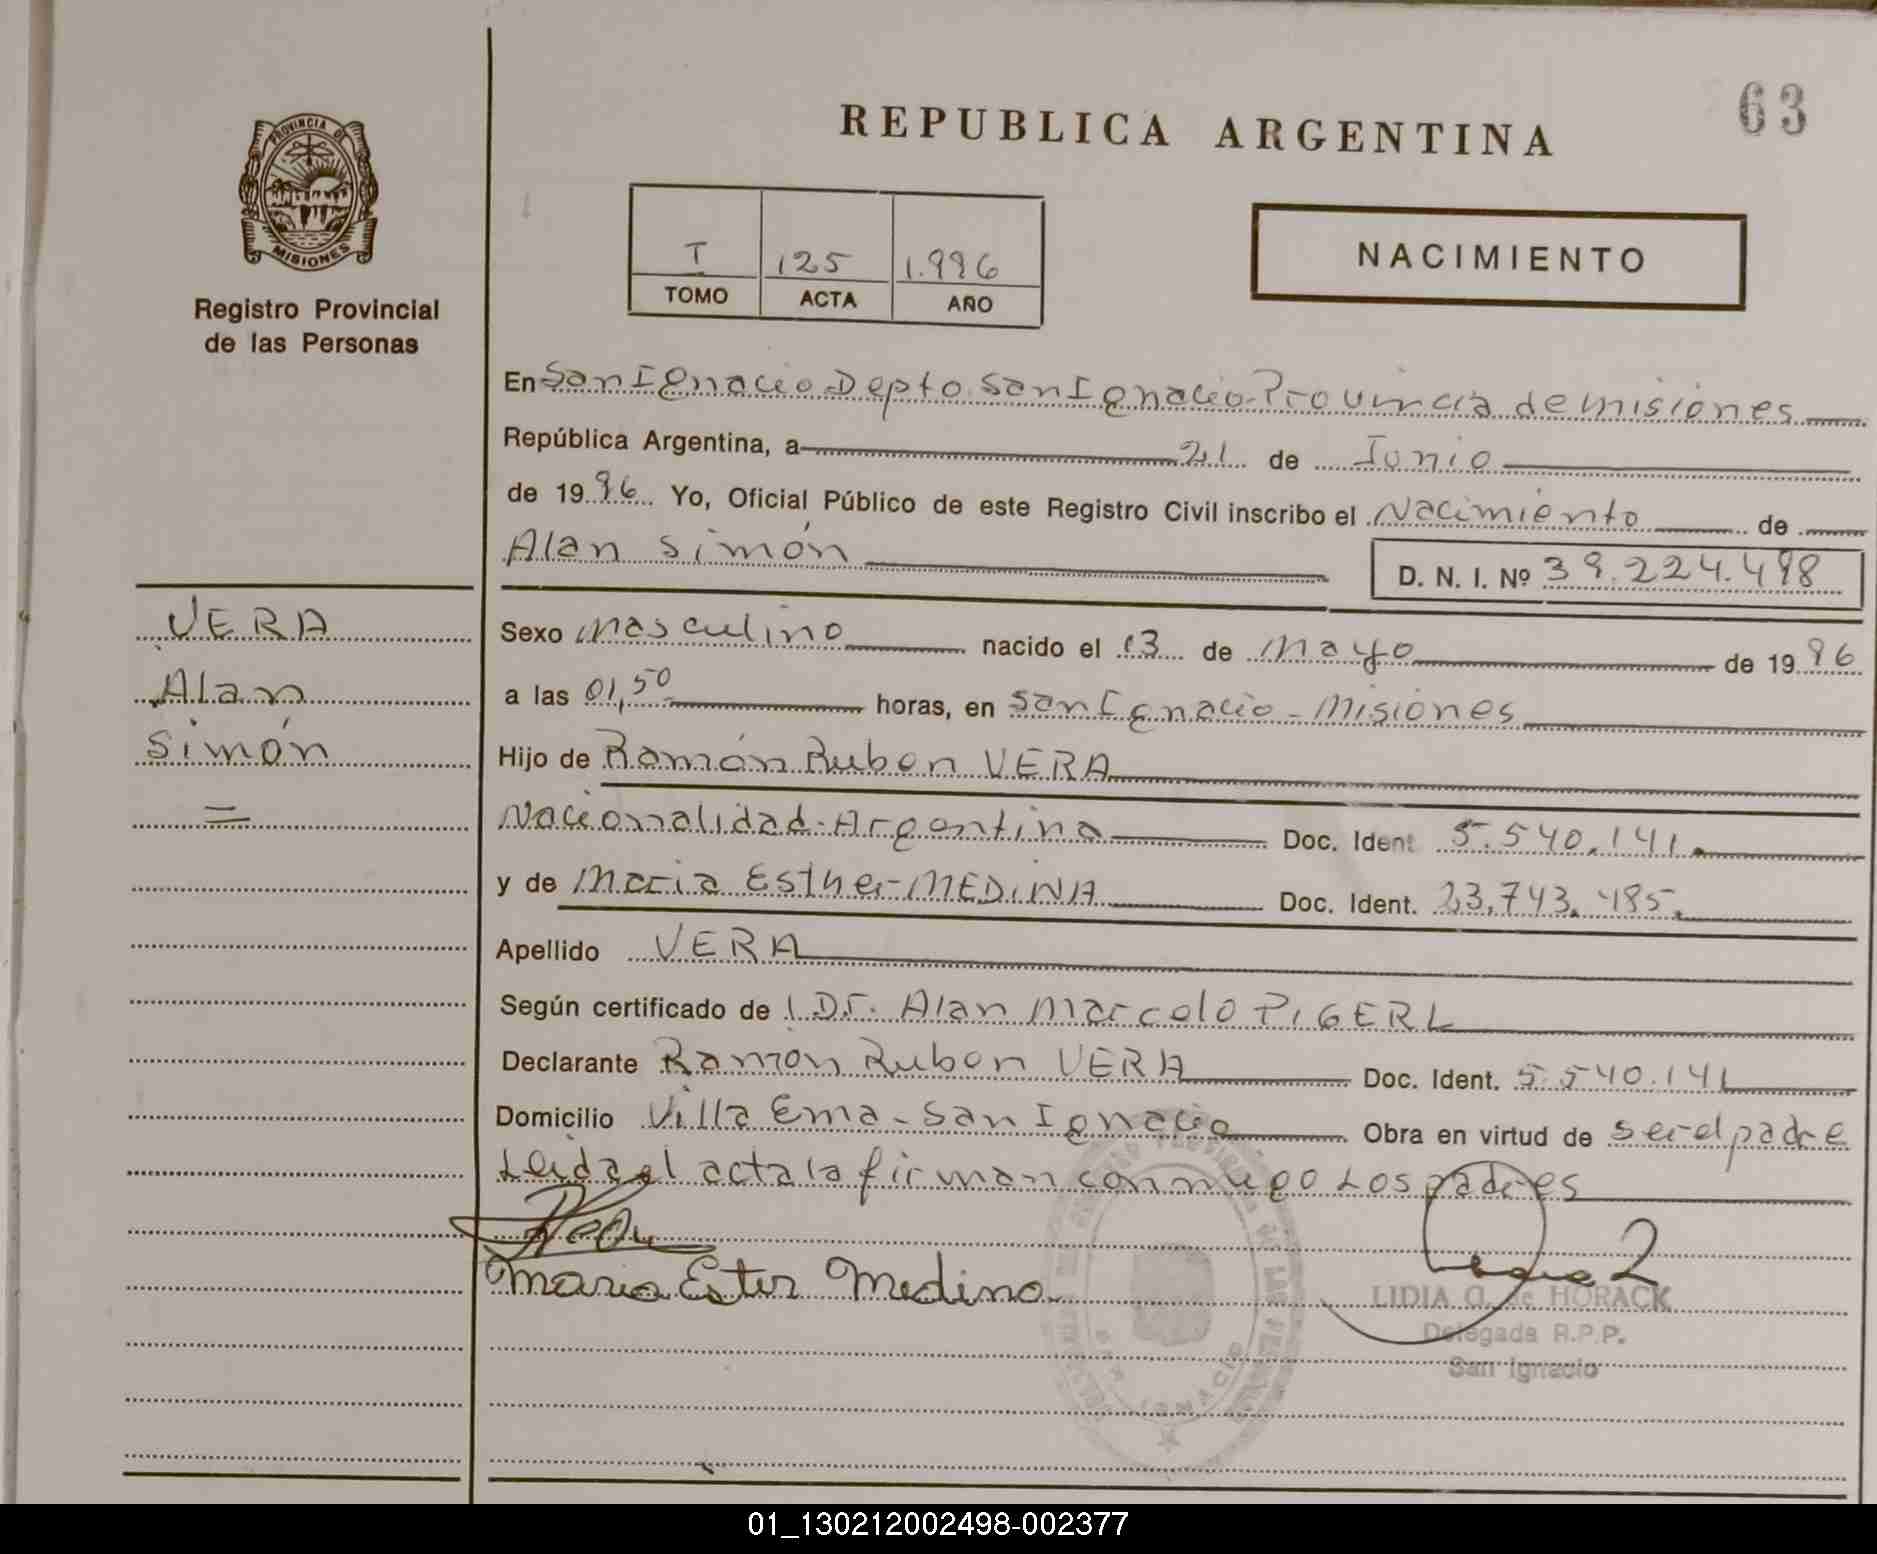 63
REPUBLICA ARGENTINA
PROVINCIA DE
MISIONES
Registro Provincial
de las Personas
T 125 1.996
TOMO ACTA AÑO
NACIMIENTO
En San Ignacio Depto. San Ignacio - Provincia de misiones
República Argentina, a 21 de Junio
de 1996 Yo, Oficial Público de este Registro Civil inscribo el Nacimiento de
Alan Simón D. N. I. Nº 39.224.498
VERA
Alan
Simón
=
Sexo masculino nacido el 13 de mayo de 1996
a las 01,50 horas, en San Ignacio - Misiones
Hijo de Ramón Ruben VERA
Nacionalidad - Argentina Doc. Ident 5.540.141.
y de Maria Esther MEDINA Doc. Ident. 23.743.485.
Apellido VERA
Según certificado de Dr. Alan Marcelo PIGERL
Declarante Ramón Ruben VERA Doc. Ident. 5.540.141
Domicilio Villa Ema - San Ignacio Obra en virtud de ser el padre
Leida el acta la firman conmigo Los padres
Maria Ester Medina
LIDIA G. de HORACK
Delegada R.P.P.
San Ignacio
01_130212002498-002377